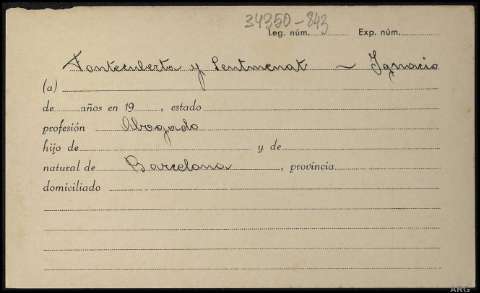 34350-843
Leg. núm. Exp. núm.
Fontcuberta y Sentmenat - Ignacio
(a)
de años en 19 , estado
profesión Abogado
hijo de y de
natural de Barcelona , provincia
domiciliado
ARG